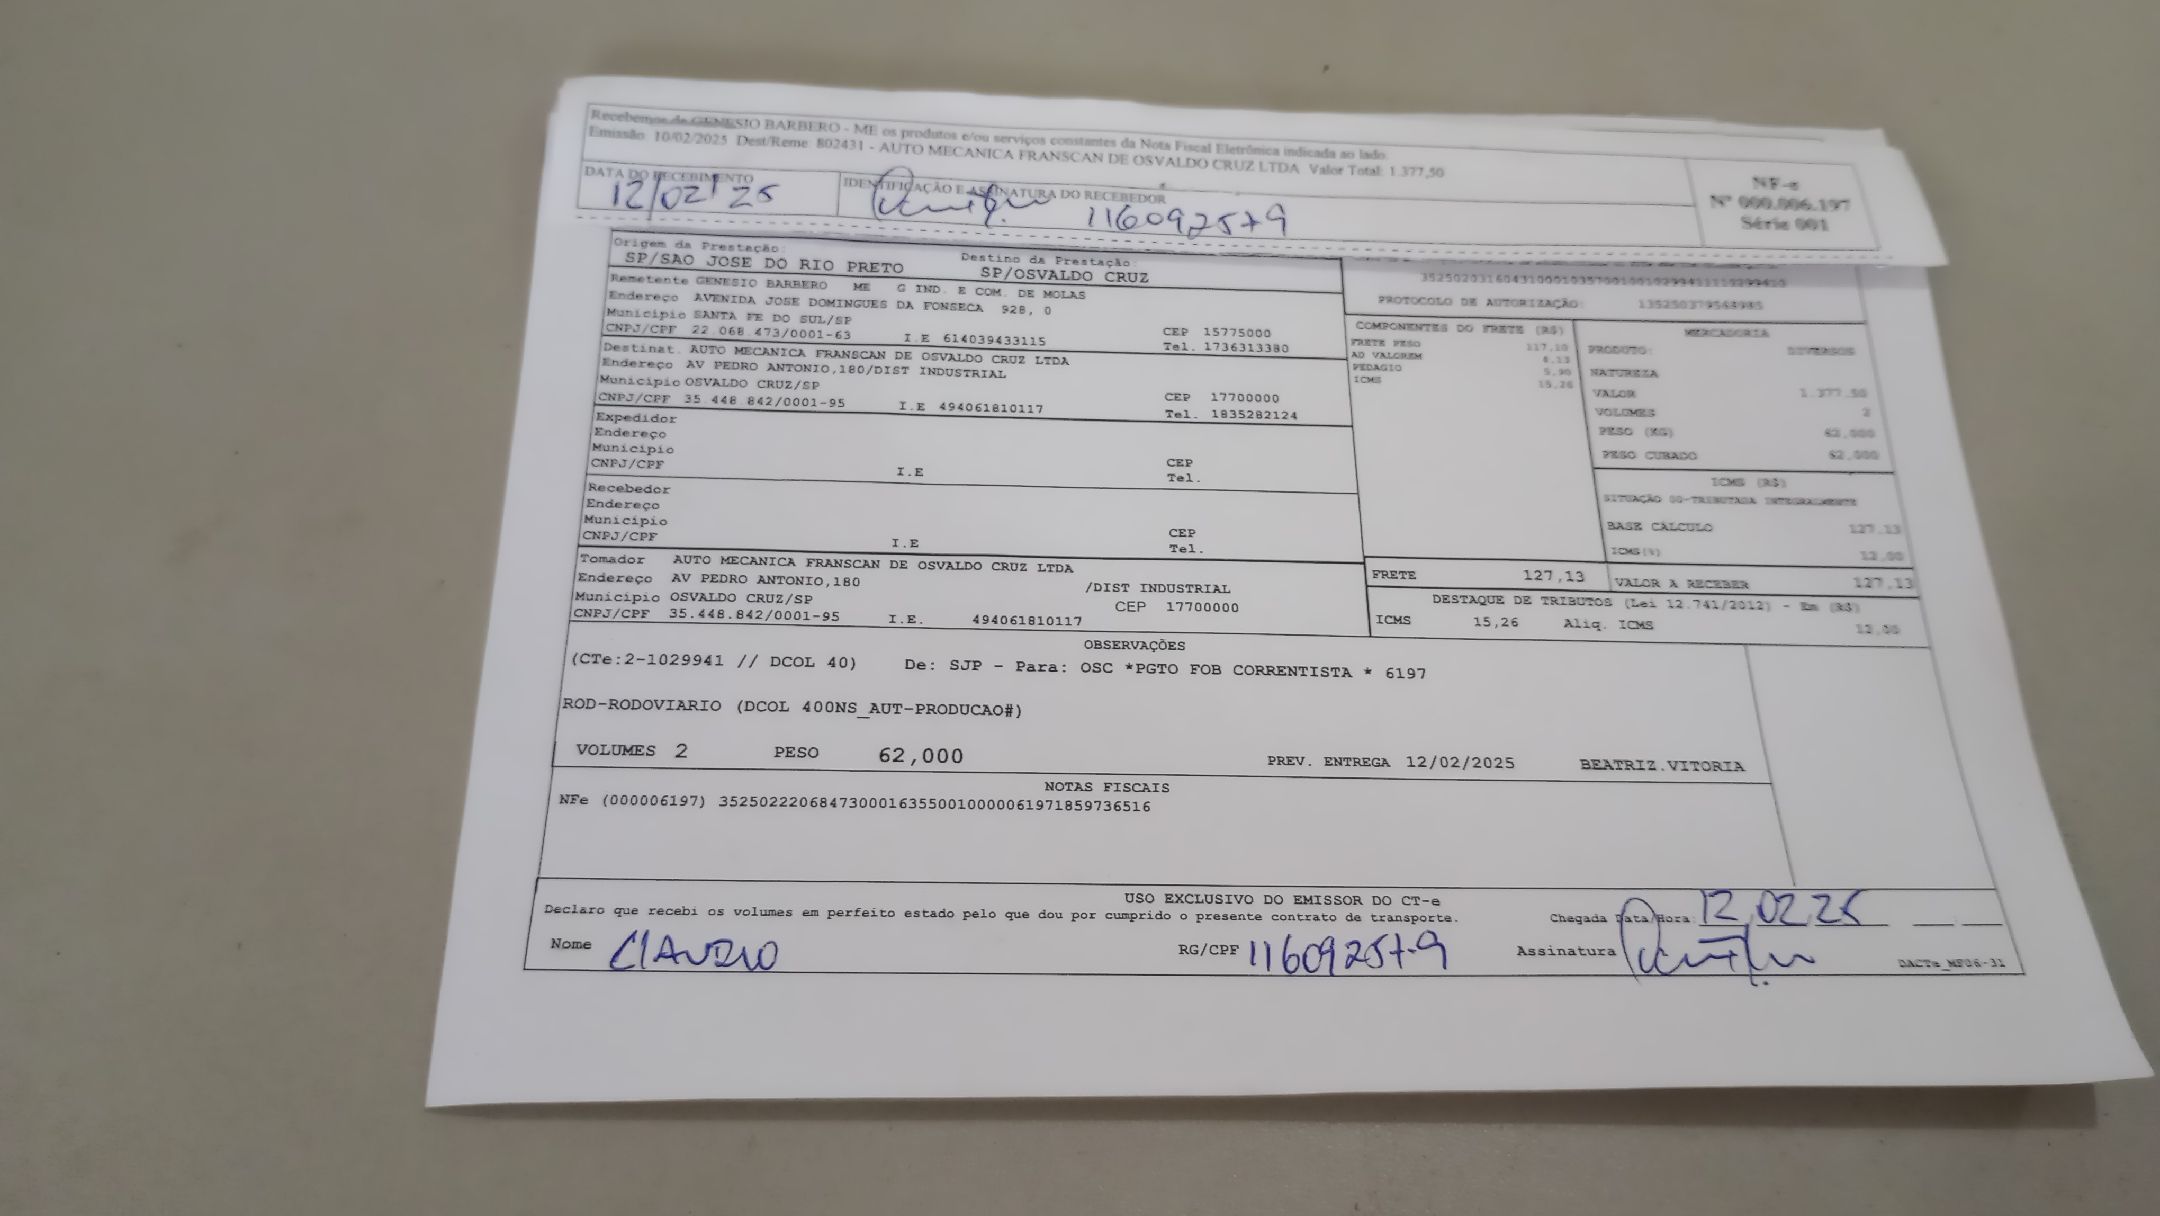 Recebemos de GENESIO BARBERO - ME os produtos e/ou serviços constantes da Nota Fiscal Eletrônica indicada ao lado.
Emissão: 10/02/2025 Dest/Reme: 802431 - AUTO MECANICA FRANSCAN DE OSVALDO CRUZ LTDA Valor Total: 1.377,50
DATA DO RECEBIMENTO
12/02/25
IDENTIFICAÇÃO E ASSINATURA DO RECEBEDOR
11609257-9
NF-e
Nº 000.006.197
Série 001
Origem da Prestação:
SP/SAO JOSE DO RIO PRETO
Destino da Prestação:
SP/OSVALDO CRUZ
Remetente GENESIO BARBERO ME G IND. E COM. DE MOLAS
Endereço AVENIDA JOSE DOMINGUES DA FONSECA 928, 0
Municipio SANTA FE DO SUL/SP CEP 15775000
CNPJ/CPF 22.068.473/0001-63 I.E 614039433115 Tel. 1736313380
Destinat. AUTO MECANICA FRANSCAN DE OSVALDO CRUZ LTDA
Endereço AV PEDRO ANTONIO,180/DIST INDUSTRIAL
Municipio OSVALDO CRUZ/SP CEP 17700000
CNPJ/CPF 35.448.842/0001-95 I.E 494061810117 Tel. 1835282124
Expedidor
Endereço
Municipio CEP
CNPJ/CPF I.E Tel.
Recebedor
Endereço
Municipio CEP
CNPJ/CPF I.E Tel.
Tomador AUTO MECANICA FRANSCAN DE OSVALDO CRUZ LTDA
Endereço AV PEDRO ANTONIO,180 /DIST INDUSTRIAL
Municipio OSVALDO CRUZ/SP CEP 17700000
CNPJ/CPF 35.448.842/0001-95 I.E. 494061810117
PROTOCOLO DE AUTORIZAÇÃO:
COMPONENTES DO FRETE (R$)
FRETE PESO 117,10
AD VALOREM 4,13
PEDAGIO 5,90
ICMS 15,26
MERCADORIA
PRODUTO: DIVERSOS
NATUREZA
VALOR 1.377,50
VOLUMES 2
PESO (KG) 62,000
PESO CUBADO 62,000
ICMS (R$)
SITUAÇÃO 00-TRIBUTADA INTEGRALMENTE
BASE CALCULO 127,13
ICMS(%) 12,00
FRETE 127,13 VALOR A RECEBER 127,13
DESTAQUE DE TRIBUTOS (Lei 12.741/2012) - Em (R$)
ICMS 15,26 Aliq. ICMS 12,00
OBSERVAÇÕES
(CTe:2-1029941 // DCOL 40) De: SJP - Para: OSC *PGTO FOB CORRENTISTA * 6197
ROD-RODOVIARIO (DCOL 400NS_AUT-PRODUCAO#)
VOLUMES 2 PESO 62,000 PREV. ENTREGA 12/02/2025 BEATRIZ.VITORIA
NOTAS FISCAIS
NFe (000006197) 35250222068473000163550010000061971859736516
USO EXCLUSIVO DO EMISSOR DO CT-e
Declaro que recebi os volumes em perfeito estado pelo que dou por cumprido o presente contrato de transporte.
Chegada Data/Hora: 12 02 25
Nome CLAUDIO RG/CPF 11609257-9 Assinatura
DACTe_MF06-31